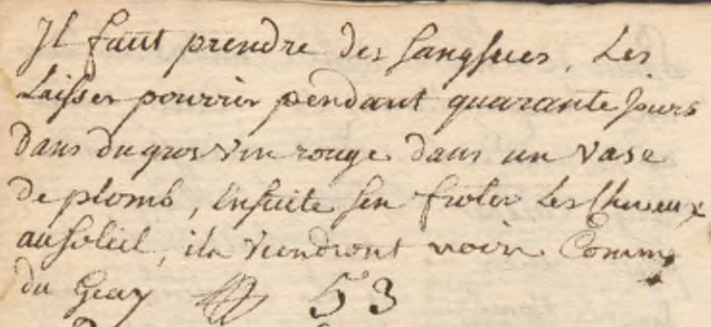 Il faut prendre des sangsues, Les
Laisser pourrir pendant quarante Jours
dans du gros vin rouge dans un vase
de plomb, Ensuite sen froter Les cheveux
au soleil, ils viendront noir Comme
du Geay 53